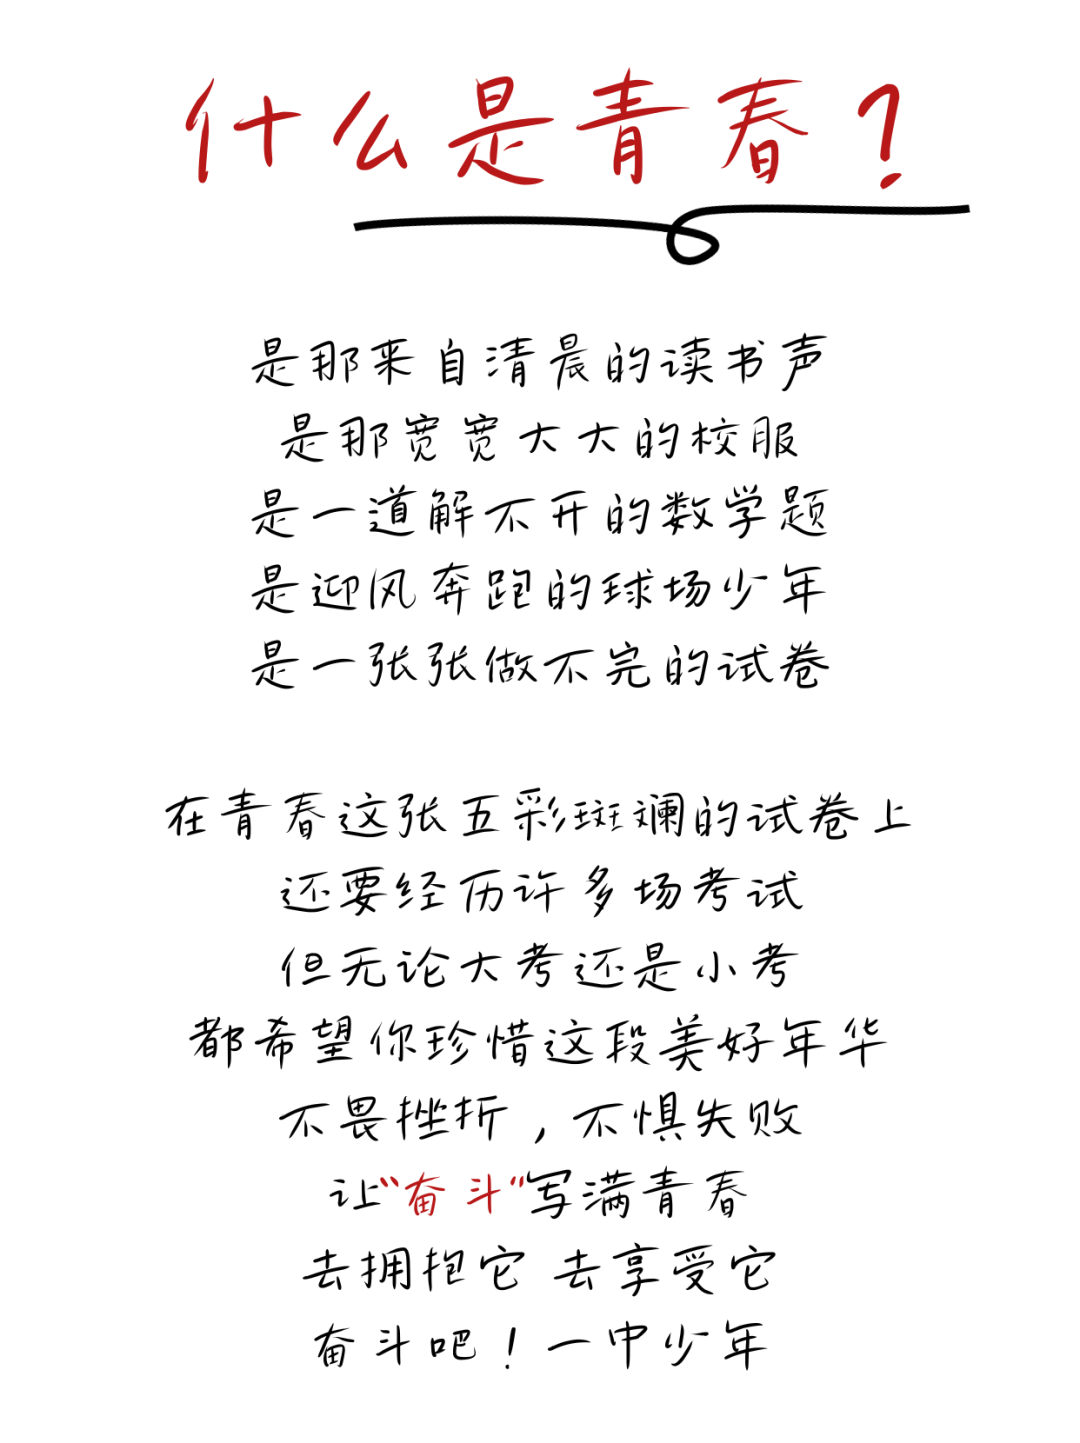 什么是青春？
是那来自清晨的读书声
是那宽宽大大的校服
是一道解不开的数学题
是迎风奔跑的球场少年
是一张张做不完的试卷
在青春这张五彩斑斓的试卷上
还要经历许多场考试
但无论大考还是小考
都希望你珍惜这段美好年华
不畏挫折，不惧失败
让“奋斗”写满青春
去拥抱它 去享受它
奋斗吧！一中少年